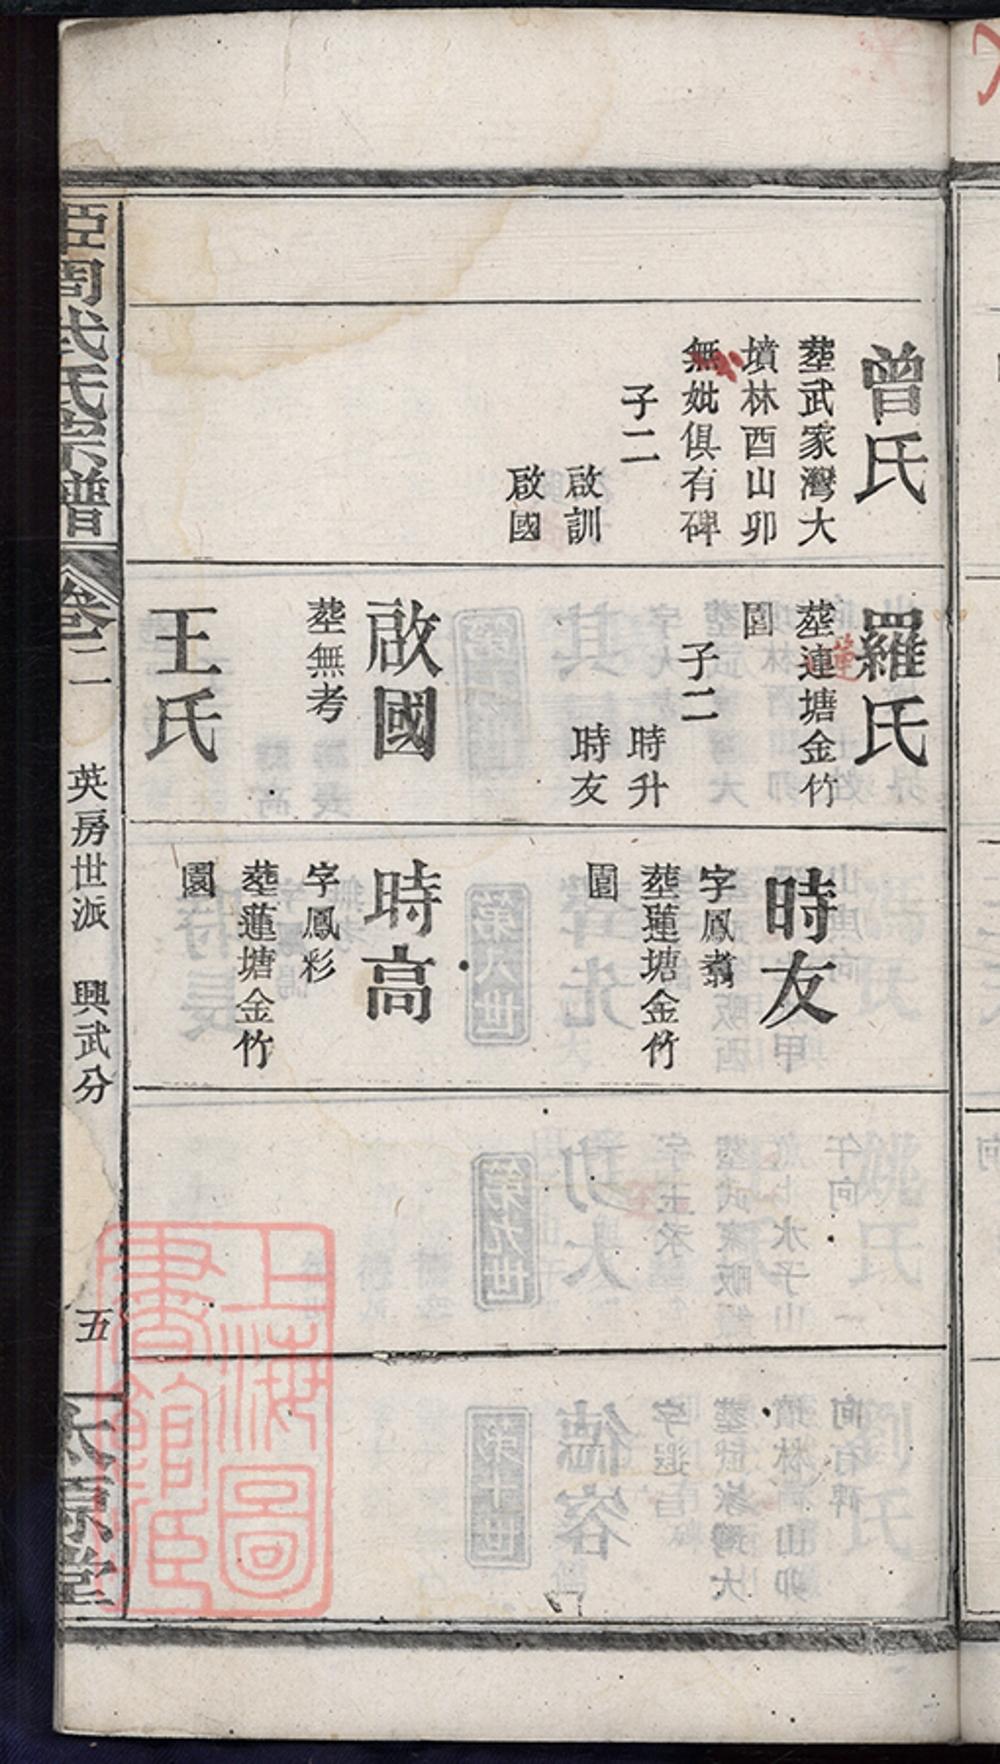 曾氏
塟武家灣大
墳林酉山卯
無妣俱有碑
子二
啟訓
啟國
羅氏
塟連塘金竹
蓮
園
子二
時升
時友
啟國
塟無考
王氏
時友
字鳳翥
塟蓮塘金竹
園
時高
字鳳彩
塟蓮塘金竹
園
周武氏宗譜
卷二
英房世派 興武分
五
太原堂
上海圖
書館藏